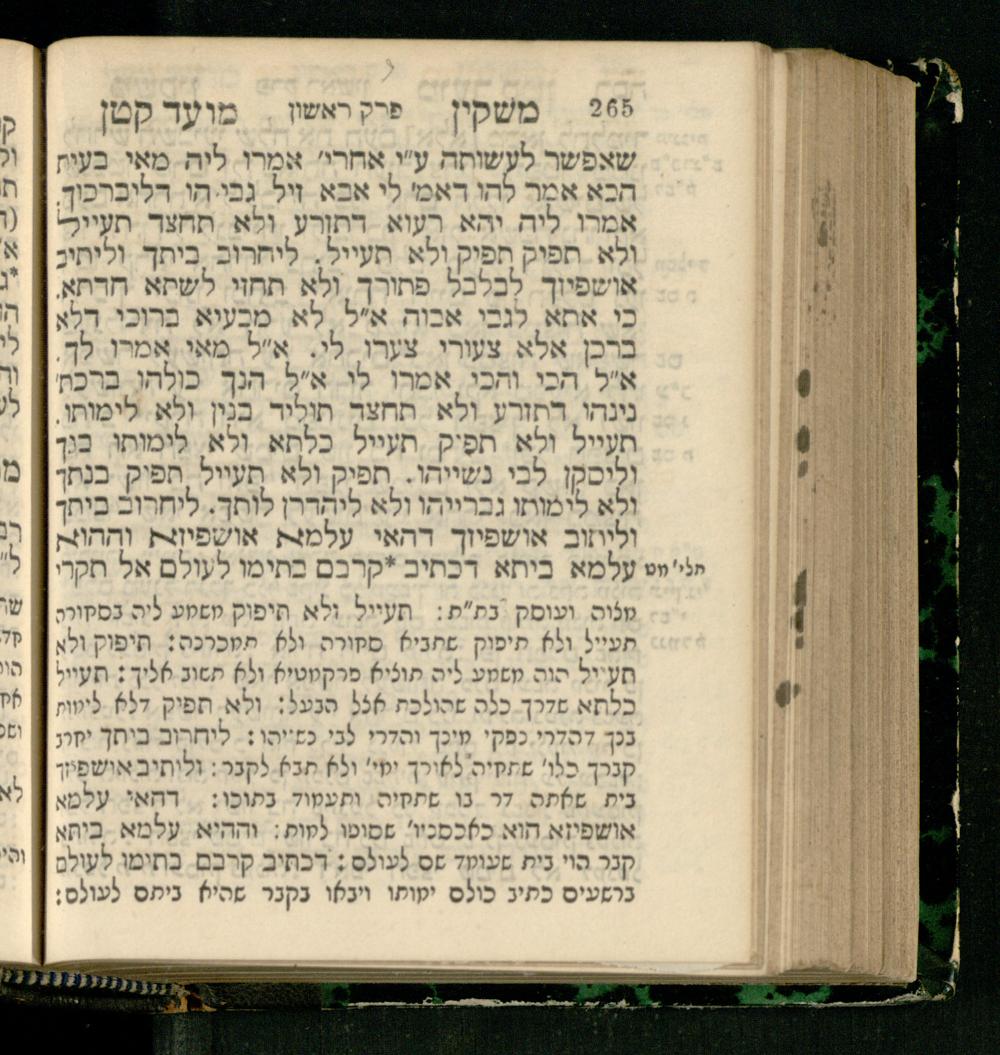 265 משקין פרק ראשון מועד קטן
שאפשר לעשותה ע״י אחרי׳ אמרו ליה מאי בעית
הכא אמר להו דאמ׳ לי אבא זיל גבי הו דליברכוך.
אמרו ליה יהא רעוא דתזרע ולא תחצד תעייל
ולא תפיק תפיק ולא תעייל. ליחרוב ביתך וליתיב
אושפיזך לבלבל פתורך ולא תחזי לשתא חדתא.
כי אתא לגבי אבוה א״ל לא מבעיא ברוכי דלא
ברכן אלא צעורי צערו לי. א״ל מאי אמרו לך.
א״ל הכי והכי אמרו לי א״ל הנך כולהו ברכת׳
נינהו דתזרע ולא תחצד תוליד בנין ולא לימותו.
תעייל ולא תפיק תעייל כלתא ולא לימותו בנך
וליסקן לבי נשייהו. תפיק ולא תעייל תפיק בנתך
ולא לימותו גברייהו ולא ליהדרן לותך. ליחרוב ביתך
וליתוב אושפיזך דהאי עלמא אושפיזא וההוא
תלי׳ מט עלמא ביתא דכתיב *קרבם בתימו לעולם אל תקרי
מצוה ועוסק בת״ת: תעייל ולא תיפוק משמע ליה בסקורה
תעייל ולא תיפוק שתביא סקורה ולא תמכרכה: תיפוק ולא
תעייל הוה משמע ליה תוציא פרקמטיא ולא תשוב אליך: תעייל
כלתא שדרך כלה שהולכת אצל הבעל: ולא תפיק דלא לימות
בנך דהדרי נפקי מינך והדרי לבי נשייהו: ליחרוב ביתך יחרב
קברך כלו׳ שתחיה לאורך ימי׳ ולא תבא לקבר: וליתיב אושפיזך
בית שאתה דר בו שתחיה ותעמוד בתוכו: דהאי עלמא
אושפיזא הוא כאכסניו׳ שסופו למות: וההיא עלמא ביתא
קבר הוי בית שעומד שם לעולם: דכתיב קרבם בתימו לעולם
ברשעים כתיב כולם ימותו ויבאו בקבר שהיא ביתם לעולם: